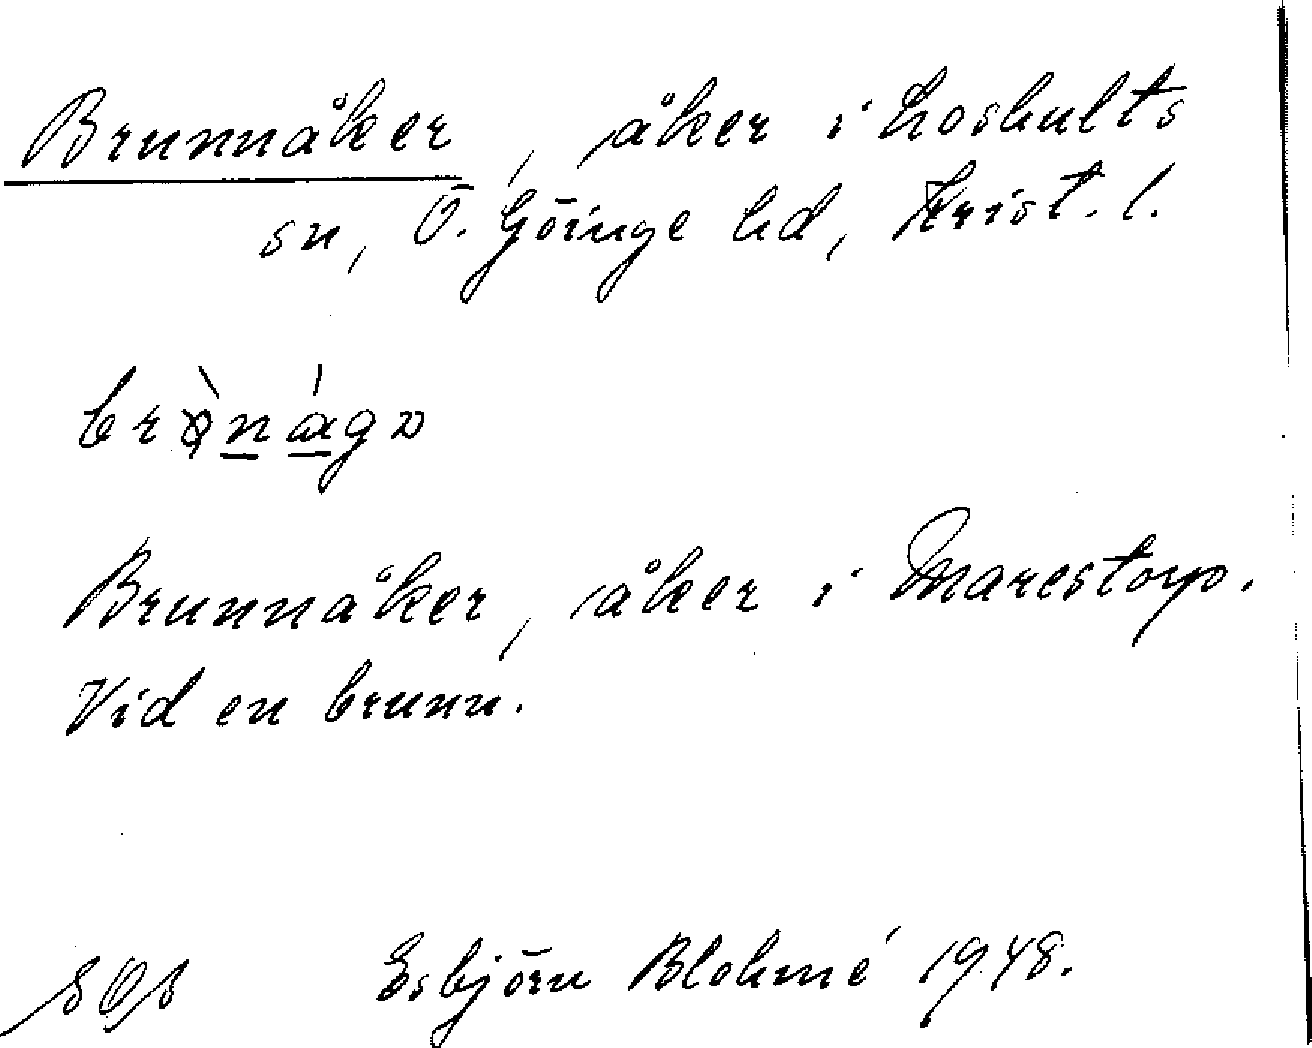 Brunnåker, åker i Loshults
sn, Ö. Göinge hd, Krist. l.
Brunnåker, åker i Marestorp.
Vid en brunn.
Esbjörn Blohmé 1948.